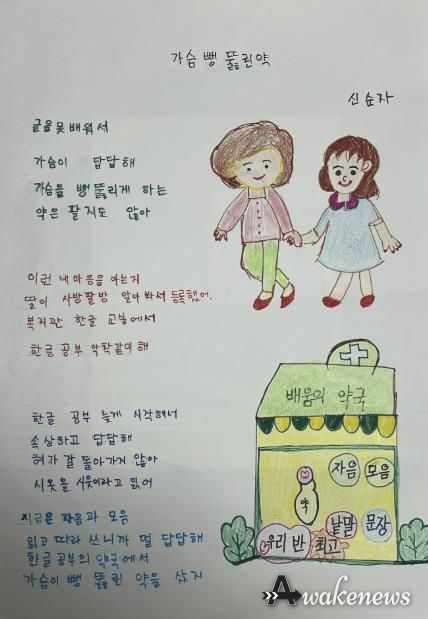 가슴 뻥 뚫린 약
신순자
글을 못 배워서
가슴이 답답해
가슴을 뻥 뚫리게 하는
약은 팔지도 않아
이런 내 마음을 아는지
딸이 사방팔방 알아봐서 등록했어.
복지관 한글 교실에서
한글 공부 악착같이 해
한글 공부 늦게 시작해서
속상하고 답답해
혀가 잘 돌아가지 않아
시옷을 시웃이라고 읽어
지금은 자음과 모음
읽고 따라 쓰니까 덜 답답해
한글 공부의 약국에서
가슴이 뻥 뚫린 약을 샀지
배움의 약국
자음 모음
약
낱말 문장
우리 반 최고
Awakenews